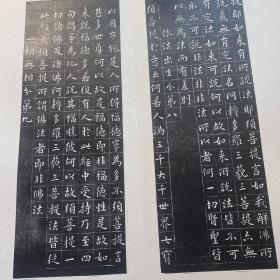 提耶如來有所說法耶須菩提言如我解佛所
說義無有定法名阿耨多羅三藐三菩提亦無
有定法如來可說何以故如來所說法皆不可
取不可說非法非非法所以者何一切賢聖皆
以無為法而有差別
依法出生分第八
須菩提於意云何若人滿三千大千世界七寶
以用布施是人所得福德寧為多不須菩提言
甚多世尊何以故是福德即非福德性是故如
來說福德多若復有人於此經中受持乃至四
句偈等為他人說其福勝彼何以故須菩提一
切諸佛及諸佛阿耨多羅三藐三菩提法皆從
此經出須菩提所謂佛法者即非佛法
一相無相分第九